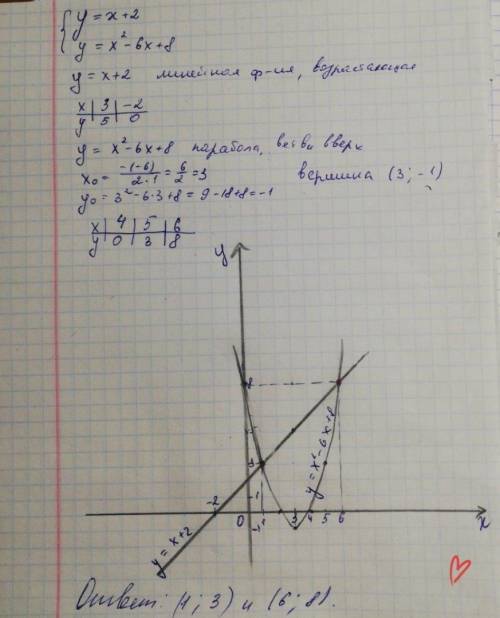 { y = x + 2
y = x² - 6x + 8
y = x + 2 линейная ф-ия, возрастающая
x | 3 | -2
y | 5 | 0
y = x² - 6x + 8 парабола, ветви вверх
x₀ = -(-6)/2·1 = 6/2 = 3 вершина (3; -1)
y₀ = 3² - 6·3 + 8 = 9 - 18 + 8 = -1
x | 4 | 5 | 6
y | 0 | 3 | 8
y
8
y = x² - 6x + 8
-2 0 3 4 5 6 x
y = x + 2
Ответ: (1; 3) и (6; 8).